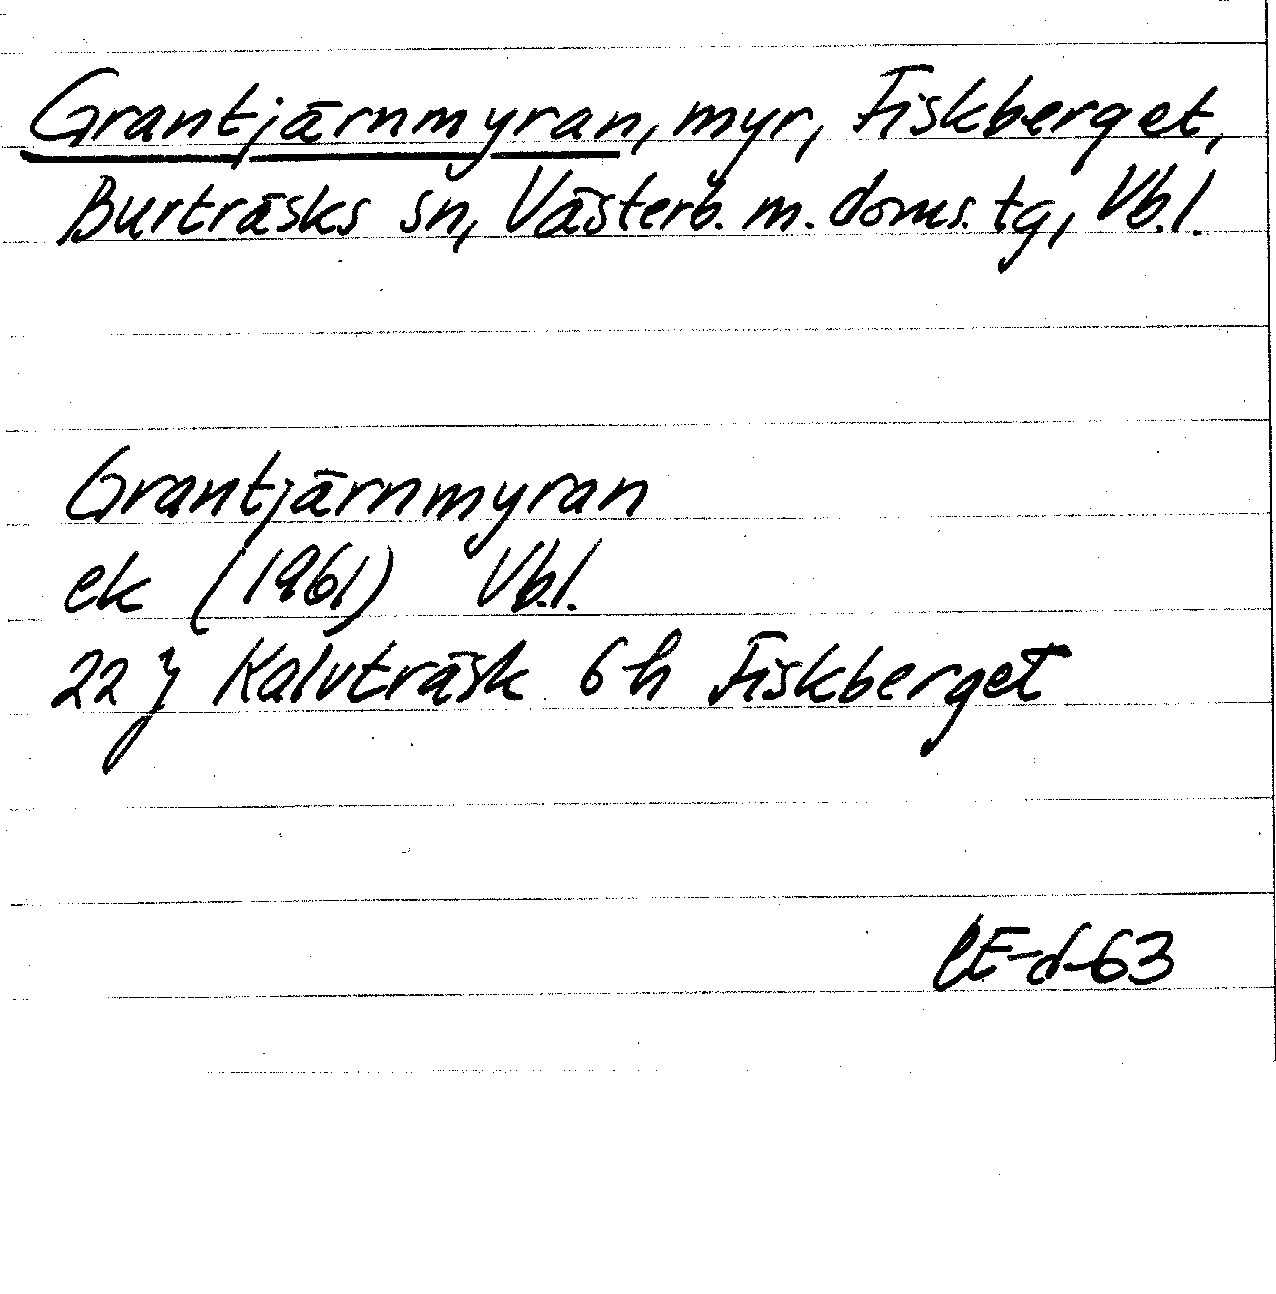 Grantjärnmyran, myr, Fiskberget,
Burträsks sn, Västerb. m. doms. tg, Vb.l.
Grantjärnmyran
ek (1961) Vb.l.
22 J Kalvträsk 6 h Fiskberget